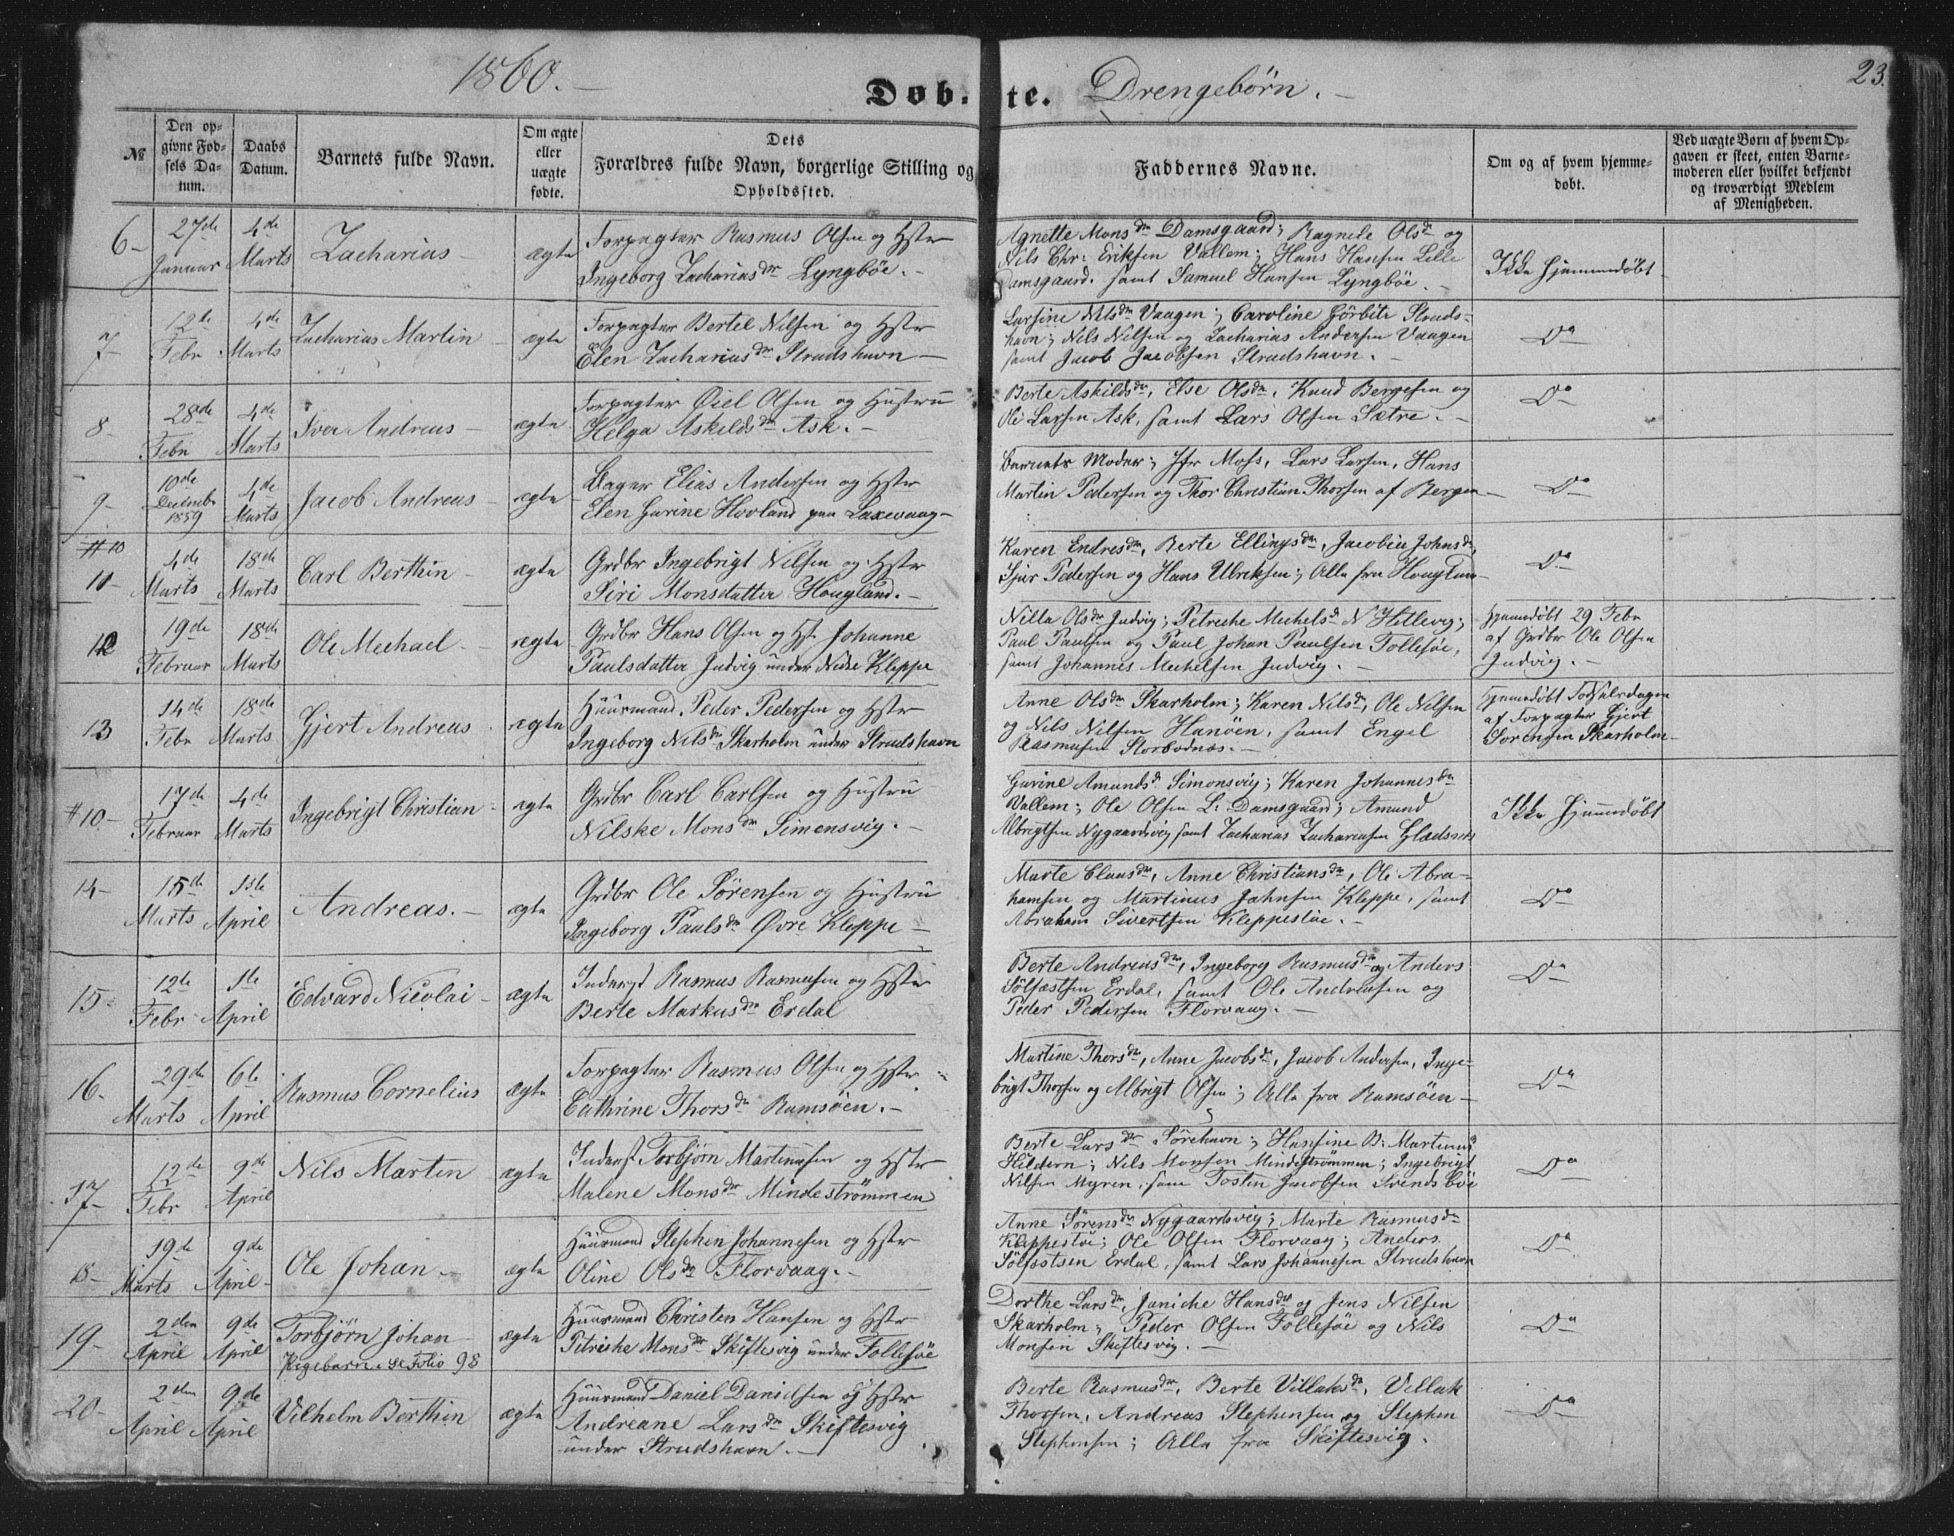 1860. –
Døb- te. Drengebørn. –
23.
№
Den op-
givne Fød-
sels Da-
tum.
Daabs
Datum.
Barnets fulde Navn.
Om ægte
eller
uægte
fødte.
Dets
Forældres fulde Navn, borgerlige Stilling og
Opholdssted.
Faddernes Navne.
Om og af hvem hjemme-
døbt.
Ved uægte Børn af hvem Op-
gaven er skeet, enten Barne-
moderen eller hvilket bekjendt
og troværdigt Medlem
af Menigheden.
6 –
27de
Januar
4de
Marts
Zacharias –
ægte
Forpagter Rasmus Olsen og Hstr
Ingeborg Zachariasdr Lyngbøe. –
Agnette Monsdr Damsgaard; Ragnele Olsdr og
Nils Chr: Eriksen Vallem; Hans Hansen Lille
Damsgaard, samt Samuel Hansen Lyngbøe. –
Ikke hjemmedøbt
7 –
12te
Febr
4de
Marts
Zacharias Martin –
ægte
Forpagter Bertel Nilsen og Hstr
Elen Zachariasdr Strudshavn –
Larsine Nilsdr Vaagen; Caroline Strods-
havn; Nils Nilsen og Zacharias Andersen Vaagen
samt Jacob Jacobsen Strudshavn. –
Do –
8 –
28de
Febr
4de
Marts
Iver Andreas –
ægte
Forpagter Øiel Olsen og Hustru
Helga Askildsdr Ask. –
Berte Askildsdr, Else Olsdr, Knud Bergesen og
Ole Larsen Ask, samt Lars Olsen Sætre. –
Do –
9 –
10de
Decembr
1859
4de
Marts
Jacob Andreas –
ægte
Bager Elias Andersen og Hstr
Elen Gurine Hovland paa Laxevaag –
Barnets Moder; Jfr Moss, Lars Larsen, Hans
Martin Pedersen og Thor Christian Thorsen af Bergen –
Do –
# 10
11 –
4de
Marts
18de
Marts
Carl Berthin –
ægte
Grdbr Ingebrigt Nilsen og Hstr
Siri Monsdatter Hougland. –
Karen Endresdr, Berte Ellingsdr, Jacobia Johnsdr,
Sjur Pedersen og Hans Ulriksen; Alle fra Hougland –
Do –
12
19de
Februar
18de
Marts
Ole Mechael –
ægte
Grdbr Hans Olsen og Hst Johanne
Paulsdatter Judvig under Nedre Kleppe
Nilla Olsdr Judvig; Petreche Mechelsdr N Hetlevig;
Paul Paulsen og Paul Johan Paulsen Follesøe,
samt Johannes Mechelsen Judvig. –
Hjemmedøbt 29 Febr
af Grdbr Ole Olsen
Judvig. –
13
14de
Febr
18de
Marts
Gjert Andreas –
ægte
Huusmand Peder Pedersen og Hstr
Ingeborg Nilsdr Skarholm under Strudshavn
Anne Olsdr Skarholm; Karen Nilsdr, Ole Nilsen
og Nils Nilsen Hanøen, samt Engel
Rasmusen Storbodnæs. –
Hjemmedøbt Fødselsdagen
af Forpagter Gjert
Sørensen Skarholm –
# 10 –
17de
Februar
4de
Marts
Ingebrigt Christian –
ægte
Grdbr Carl Carlsen og Hustru
Nilske Monsdr Simensvig. –
Gurine Amundsdr Simonsvig; Karen Johannesdr
Vallem; Ole Olsen L: Damsgaard; Amund
Albrigtsen Nygaardsvig samt Zacharias Zachariasen
Ikke hjemmedøbt
14 –
15de
Marts
1ste
April
Andreas. –
ægte
Grdbr Ole Sørensen og Hustru
Ingeborg Paulsdr Øvre Kleppe –
Marte Clausdr, Anne Christiansdr, Ole Abra-
hamsen og Martinus Jahnsen Kleppe, samt
Abraham Sivertsen Kleppestøe. –
Do –
15 –
12te
Febr
1ste
April
Edvard Nicolai –
ægte
Inderst Rasmus Rasmusen og Hstr
Berte Markusdr Erdal
Berte Andreasdr, Ingeborg Rasmusdr og Anders
Sölfæstsen Erdal, samt Ole Andreasen og
Peder Pedersen Florvaag. –
Do –
16 –
29de
Marts
6te
April
Rasmus Cornelius
ægte
Forpagter Rasmus Olsen og Hstr
Cathrine Thorsdr Ramsøen. –
Martine Thorsdr, Anne Jacobsdr, Jacob Andersen, Inge-
brigt Thorsen og Albrigt Olsen; Alle fra Ramsøen –
Do –
17 –
12te
Febr
9de
April
Nils Martin
ægte
Inderst Torbjørn Martinussen og Hstr
Malene Monsdr Mindestrømmen
Berte Larsdr Sørehavn; Hansine B: Martinus
Hildern; Nils Monsen Mindestrømmen; Ingebrigt
Nilsen Myren, samt Tostin Jacobsen Svendsbøe
Do –
18 –
19de
Marts
9de
April –
Ole Johan –
ægte
Huusmand Stephen Johannesen og Hstr
Oline Olsdr Florvaag. –
Anne Sørensdr Nygaardsvig; Marte Rasmusdr
Kleppestøe; Ole Olsen Florvaag; Anders
Sölfestsen Erdal, samt Lars Johannesen Strudshavn
Do –
19 –
2den
April
9de
April
Torbjørn Johan
Pigebarn. se Folio 98
ægte
Huusmand Christen Hansen og Hstr
Petriche Monsdr Skiftesvig under Follesøe
Dorthe Larsdr, Janiche Hansdr og Jens Nilsen
Skarholm; Peder Olsen Follesøe og Nils
Monsen Skiftesvig. –
Do –
20 –
2den
April
9de
April
Vilhelm Berthin
ægte
Huusmand Daniel Danielsen og Hstr
Andreane Larsdr Skiftesvig
under Strudshavn. –
Berte Rasmusdr, Berte Villaksdr, Villak
Thorsen, Andreas Stephensen og Stephen
Stephensen; Alle fra Skiftesvig.
Do –